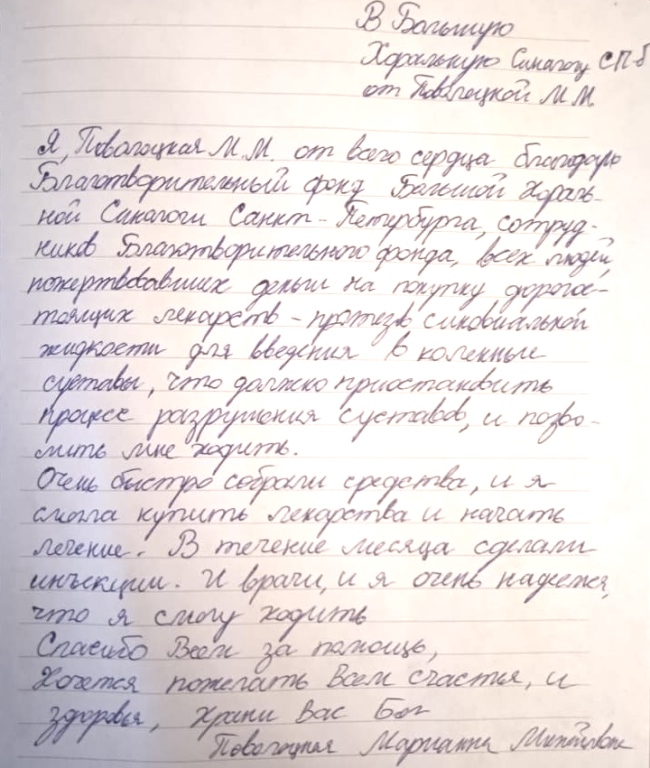 В Большую
Хоральную Синагогу СПб
от Поволоцкой М.М.
Я, Поволоцкая М.М. от всего сердца благодарю
Благотворительный фонд Большой Хораль-
ной Синагоги Санкт-Петербурга, сотруд-
ников Благотворительного фонда, всех людей,
пожертвовавших деньги на покупку дорогос-
тоящих лекарств - протезов синовиальной
жидкости для введения в коленные
суставы, что должно приостановить
процесс разрушения суставов, и позво-
лить мне ходить.
Очень быстро собрали средства, и я
смогла купить лекарства и начать
лечение. В течение месяца сделали
инъекции. И врачи, и я очень надеемся,
что я смогу ходить
Спасибо Всем за помощь,
Хочется пожелать Всем счастья, и
здоровья, Храни Вас Бог
Поволоцкая Марианна